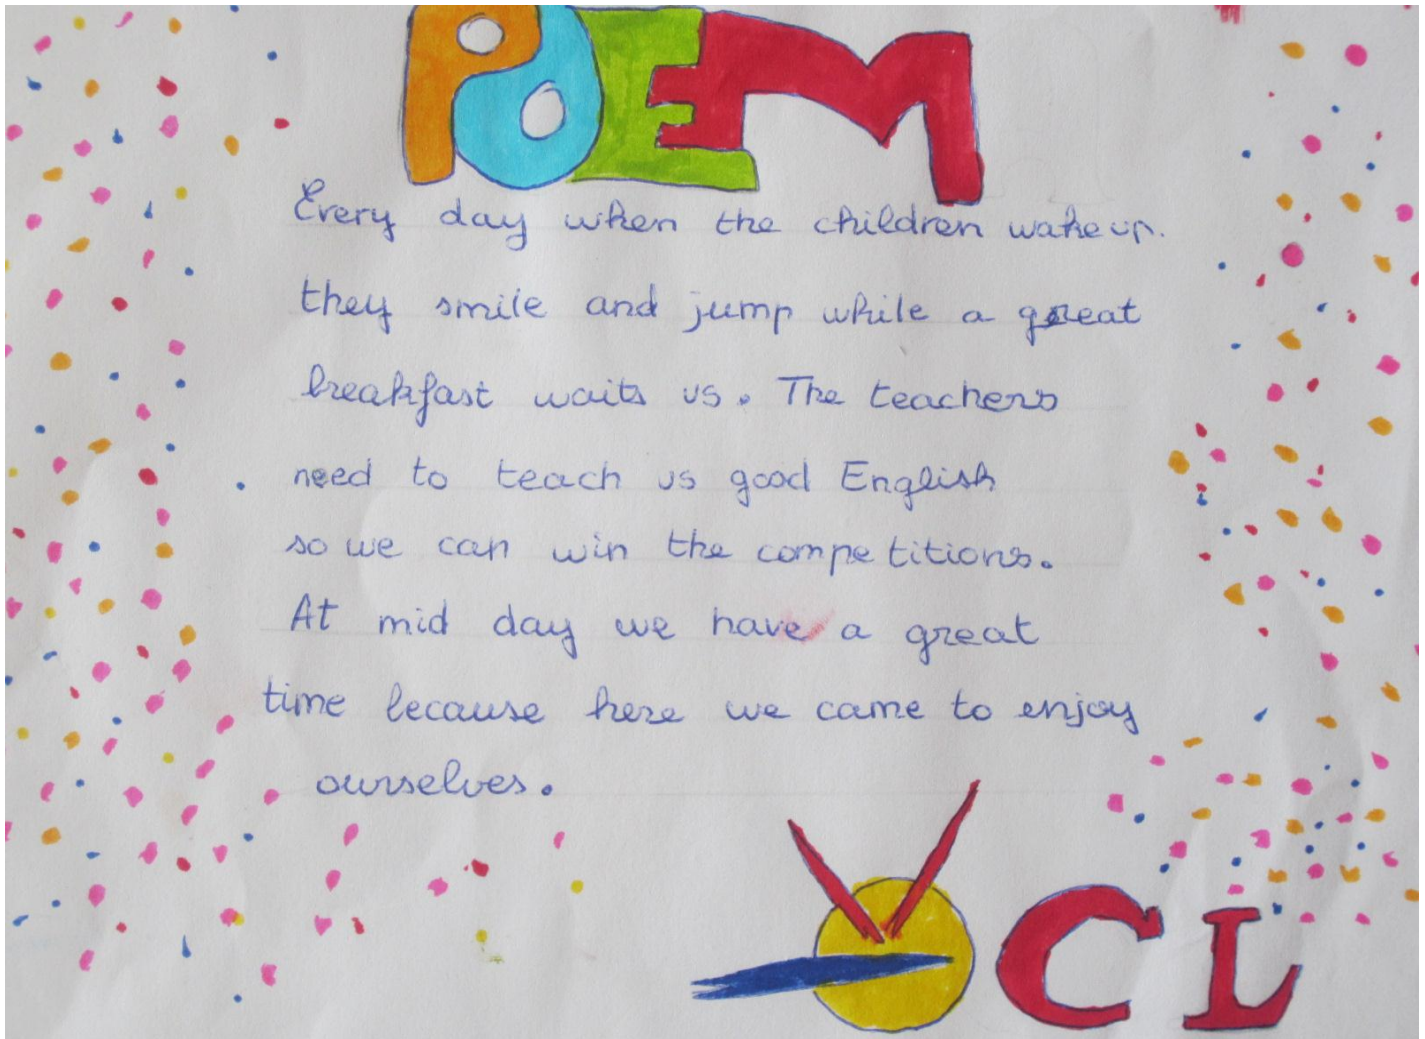 POEM
Every day when the children wake up.
they smile and jump while a great
breakfast waits us. The teachers
need to teach us good English
so we can win the competitions.
At mid day we have a great
time because here we came to enjoy
ourselves.
CL